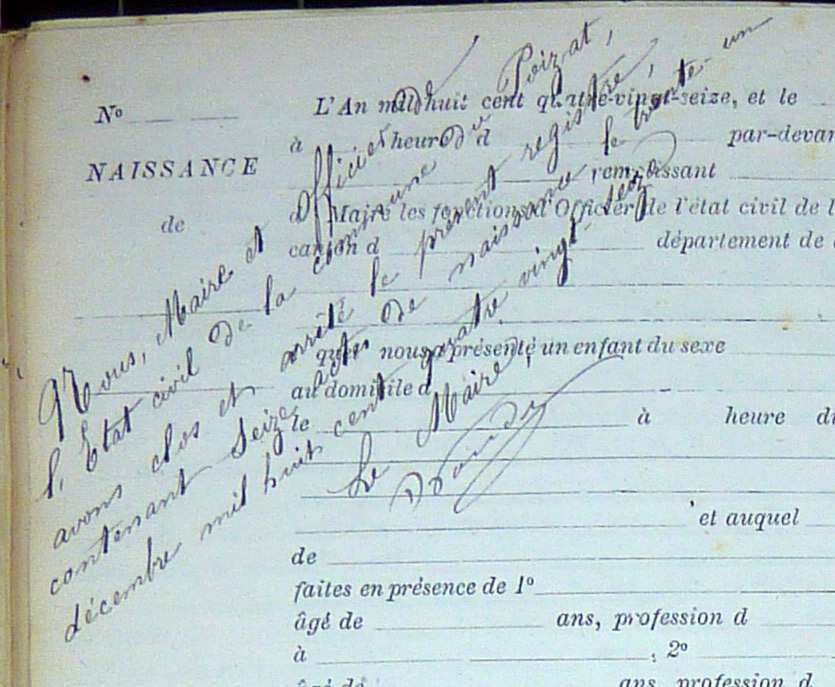 Nous, Maire et Officier de
l'Etat civil de la commune du Poizat,
avons clos et arrêté le présent registre,
contenant Seize actes de naissance le trente-un
décembre mil huit cent quatre vingt seize
Le Maire,
N°
NAISSANCE
de
L'An mil huit cent quatre-vingt-seize, et le
à heure d par-devan
remplissant
d Maire les fonctions d'Officier de l'état civil de l
canton d département de
qu nous a présenté un enfant du sexe
au domicile d
le à heure du
et auquel
de
faites en présence de 1°
âgé de ans, profession d
à , 2°
âgé de ans, profession d